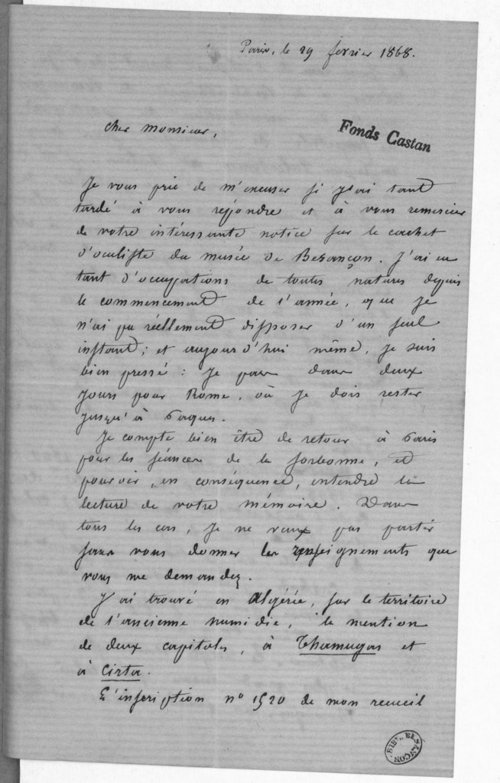 Paris, le 29 fevrier 1868.
Fonds Castan
cher monsieur,
Je vous prie de m'excuser si j'ai tant
tardé à vous répondre et à vous remercier
de votre intéressante notice sur le cachet
d'oculiste du musée de Besançon. J'ai eu
tant d'occupations de toutes natures depuis
le commencement de l'année, que je
n'ai pu réellement disposer d'un seul
instant; et aujourd'hui même, je suis
bien pressé : je pars dans deux
jours pour Rome, où je dois rester
jusqu'à Pâques.
Je compte bien être de retour à Paris
pour les séances de la Sorbonne, et
pouvoir, en conséquence, entendre la
lecture de votre mémoire. Dans
tous les cas, je ne veux pas partir
sans vous donner les renseignements que
vous me demandez.
J'ai trouvé en Algérie, sur le territoire
de l'ancienne numidie, la mention
de deux capitoles, à Thamugas et
à Cirta.
L'inscription n° 1520 de mon recueil